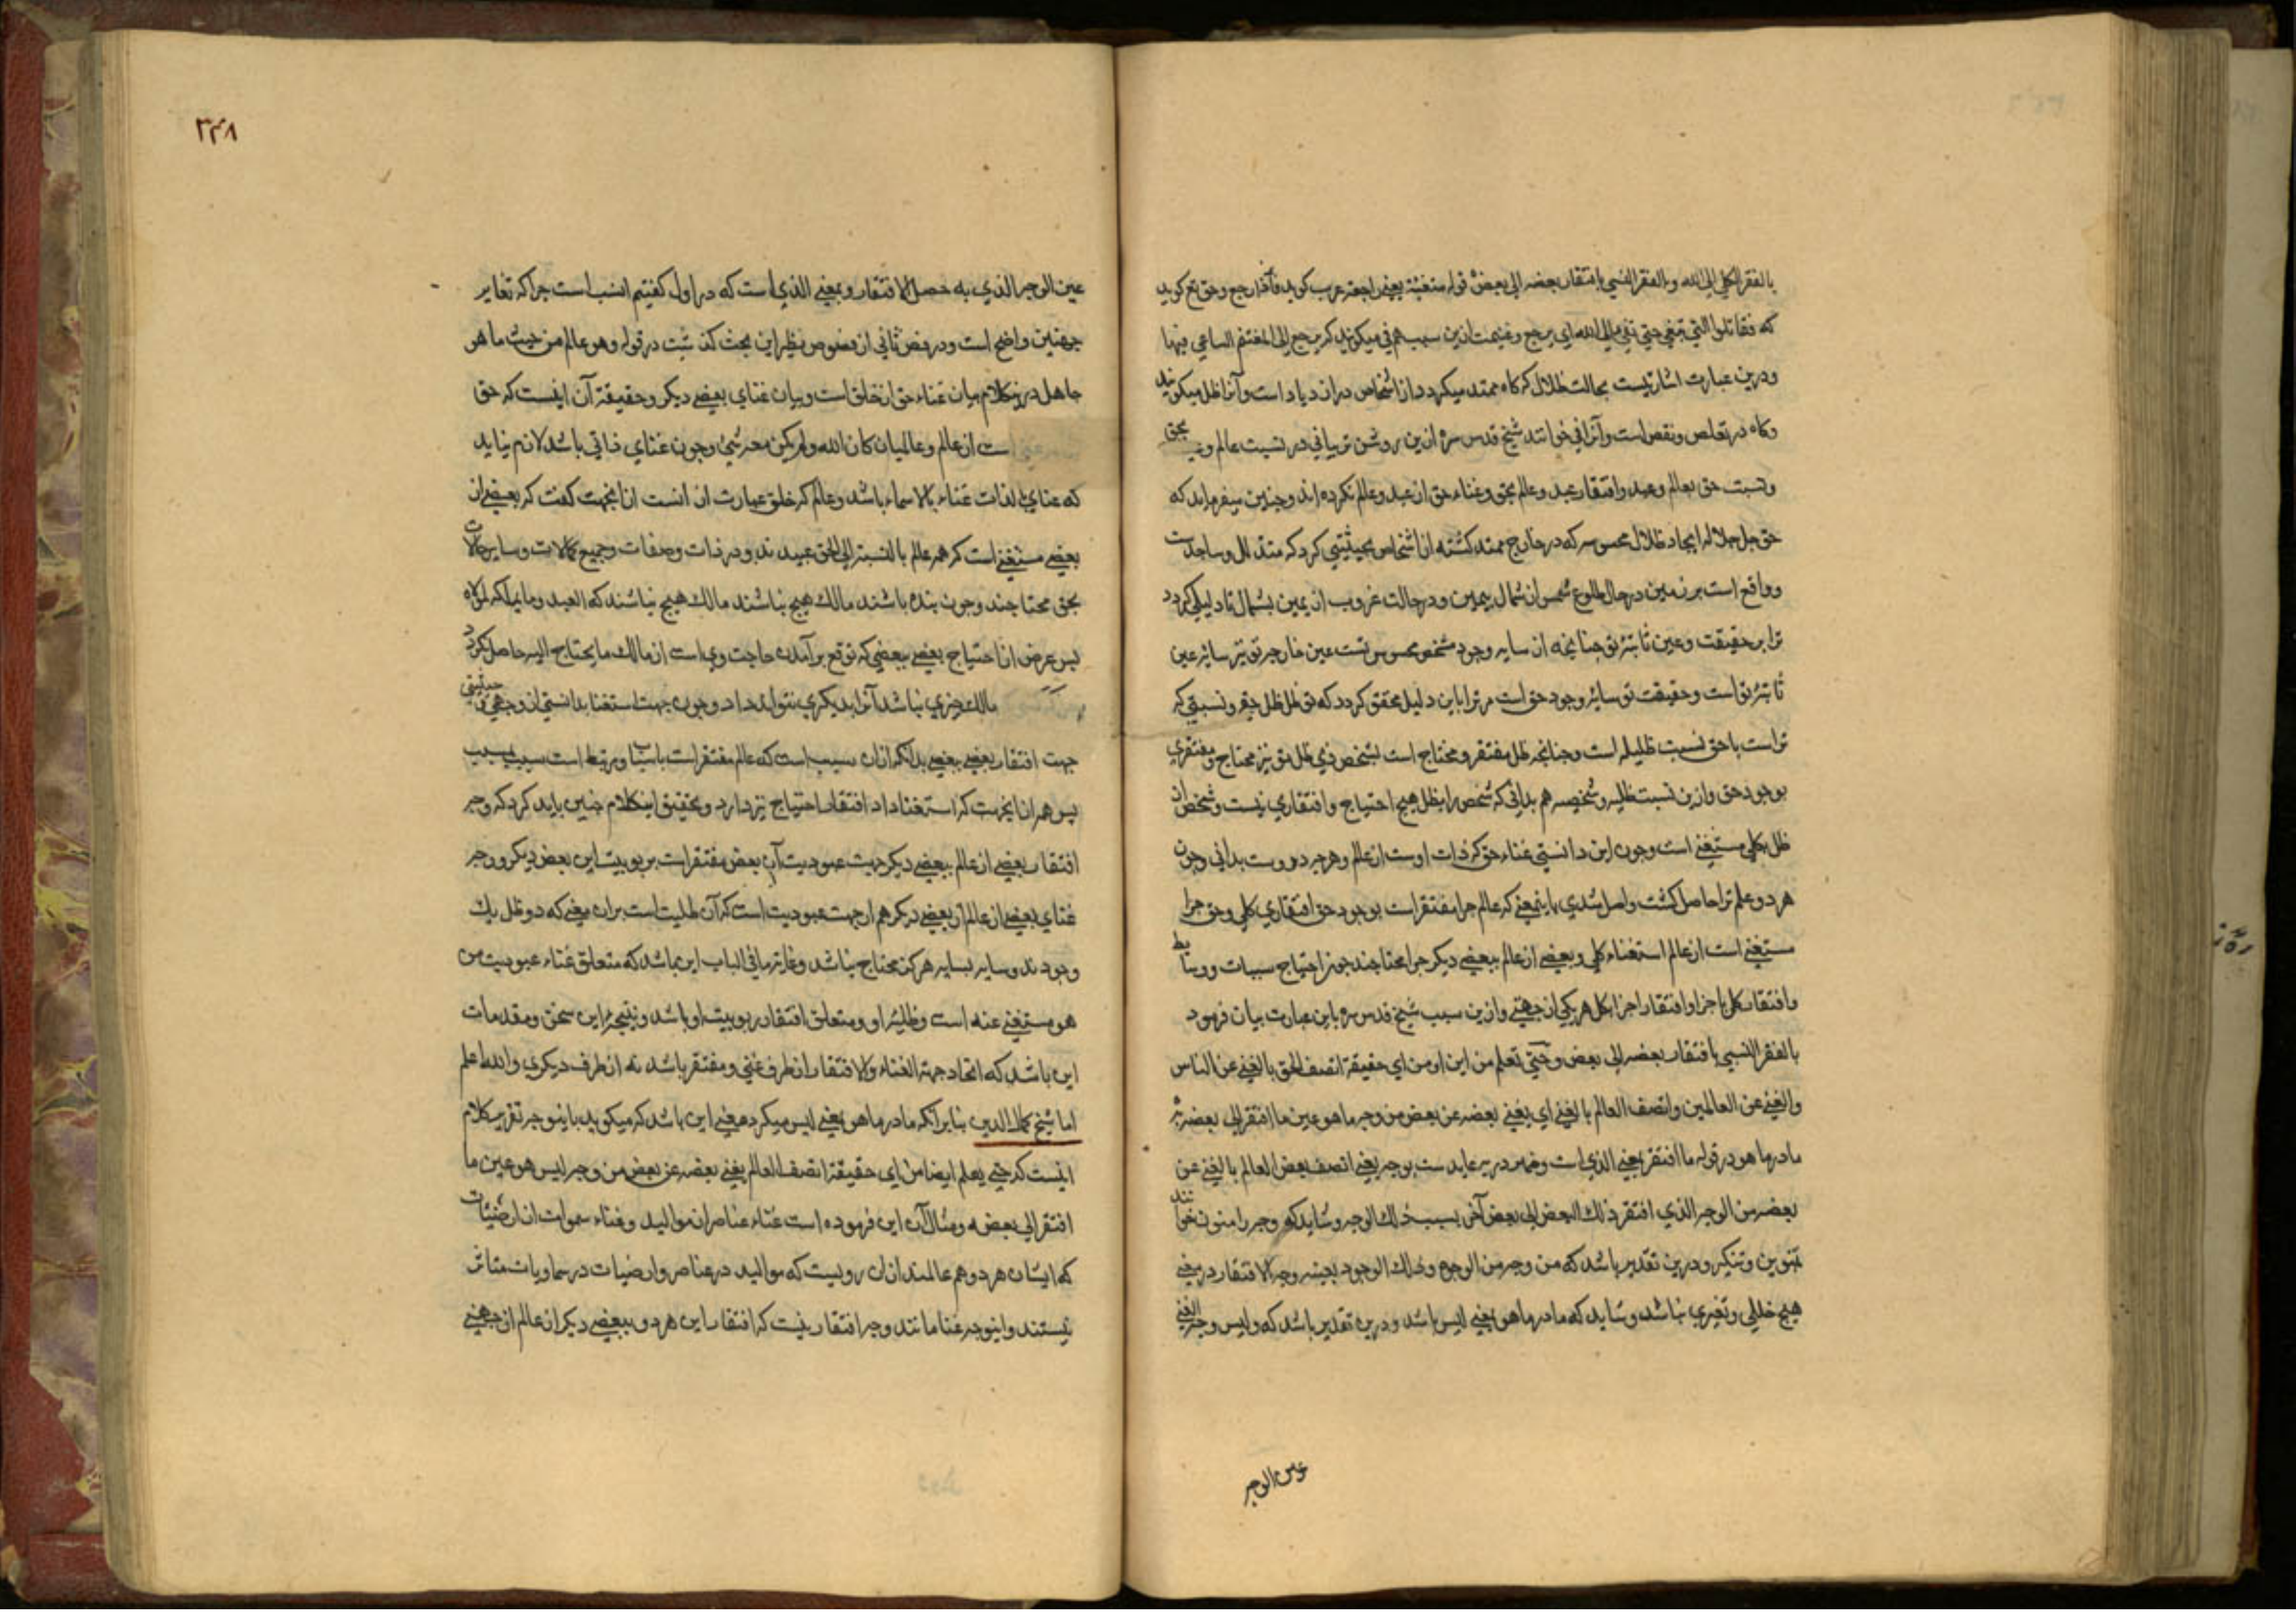 بالفقر الکلي الي الله و بالفقر النسبي بافتقار بعضه الي بعض قوله متفیئة یعنی راجعة عرب کوید فاء اذا رجع و حق تع کوید
که فقاتلوا التي تبغي حتي تفئ الي الله اي یرجع و غنیمت ازین سبب هم فئ میکویند که یرجع الي المغتنم الساعي فیها
و درین عبارت اشارتیست بحالت ظلال که کاه ممتد میکردد از اشخاص در ازدیاد است و آنرا ظل میکویند
و کاه در تقلص و نقص است و آنرا فئ خوانند شیخ قدس سره ازین روشن تر بیانی در نسبت عالم بحق
و نسبت حق بعالم و عبد و افتقار عبد و عالم بحق و غناء حق از عبد و عالم نکرده اند و چنین میفرماید که
حق جل جلاله ایجاد ظلال محسوسه که در خارج ممتد کشته از اشخاص بحیثیتي کرد که متذلل و ساجدست
و واقع است بر زمین در حال طلوع شمس از شمال بیمین و در حالت غروب از یمین بشمال تا دلیلي کردد
ترا بر حقیقت و عین ثابتۀ تو چنانچه از سایه وجود شخص محسوس تست عین خارجیۀ تو نیز سایۀ عین
ثابتۀ تو است و حقیقت تو سایۀ وجود حق است مر ترا باین دلیل محقق کردد که تو ظل ظل حقي و نسبتي که
تراست با حق نسبت ظلیه است و چنانچه ظل مفتقر و محتاج است بشخص ذي ظل تو نیز محتاج و مفتقري
بوجود حق و ازین نسبت ظلیه و شخصیه هم بداني که شخص را بظل هیچ احتیاج و افتقاري نیست و شخص از
ظل بکلي مستغني است و چون این دانستي غناء حق که ذات اوست از عالم و هر چه دروست بداني و چون
هر دو علم ترا حاصل کشت واصل شدي باینمعنی که عالم چرا مفتقر است بوجود حق افتقاري کلي و حق چرا
مستغني است از عالم استغناء کلي و بعضي از عالم ببعضي دیکر چرا محتاجند چون احتیاج مسببات و وسایط
و افتقار کل باجزا و افتقار اجزا بکل هر یکي از جهتي و ازین سبب شیخ قدس سره باین عبارت بیان فرمود
بالفقر النسبي بافتقار بعضه الي بعض و حتي تعلم من این او من اي حقیقة اتصف الحق بالغني عن الناس
و الغني عن العالمین و اتصف العالم بالغني اي یغني بعضه عن بعض من وجه ما هو عین ما افتقر الي بعضه به
ما در ما هو در قوله ما افتقر بمعني الذي است و ضمیر در به عاید ست بوجه یعني اتصف بعض العالم بالغني عن
بعضه من الوجه الذي افتقر ذلك البعض الي بعض آخر بسبب ذلك الوجه و شاید که وجه را منون خوانند
بتنوین و تنکیر و درین تقدیر باشد که من وجه من الوجوه و ذلك الوجه بعینه وجه الافتقار در معني
هیچ خللي و تغیري نباشد و شاید که ما در ما هو بمعني لیس باشد و درین تقدیر باشد که و لیس وجه الغني
عین الوجه
٣٤٨
عین الوجه الذي به حصل الافتقار و بمعني الذي است که در اول کفتیم انسب است چرا که تغایر
جهتین واضح است و در فص ثاني از فصوص نظیر این بحث کذشت در قوله و هو عالم من حیث ما هو
جاهل درینکلام بیان غناء حق از خلق است و بیان غناي بعضي دیکر و حقیقة آن اینست که حق
است از عالم و عالمیان کان الله و لم یکن معه شئ و چون غناي ذاتي باشد لازم نیاید
که غناي بالذات غناء بالاسماء باشد و عالم که خلق عبارت از انست ازانجهت کفت که بعضي از
بعضي مستغني است که همه عالم بالنسبة الي الحق عبیدند و در ذات و صفات و جمیع کمالات و سایر حالات
بحق محتاجند و چون بنده باشند مالك هیچ نباشند مالك هیچ نباشند که العبد و ما یملکه لمولاه
پس غرض از احتیاج بعضي ببعضي که توقع برآمدن حاجت وي است از مالك ما یحتاج الیه حاصل نکردد
مالك چیزي نباشد آنرا بدیکري نتواند داد و چون جهت استغنا بدانستي از وجهي و حیثیتي
جهت افتقار بعضي ببعضي بدانکه ازان سبب است که عالم مفتقر است باسباب و مرتبط است سبب بمسبب
پس همه ازانجهت که استغنا داد افتقار احتیاج نیز دارد و تحقیق اینکلام چنین باید کرد که وجه
افتقار بعضي از عالم ببعضي دیکر جهت عبودیت آن بعض مفتقر است بربوبیت این بعض دیکر و وجه
غناي بعضي از عالم از بعضي دیکر هم از جهت عبودیت است که آن ظلیت است بران معني که دو ظل یك
وجودند و سایه بسایه هرکز محتاج نباشد و غایة ما في الباب این باشد که متعلق غناء عبودیت من
هو مستغني عنه است و ظلیۀ او و متعلق افتقار ربوبیت او باشد و نتیجۀ این سخن و مقدمات
این باشد که اتحاد جهة الغناء و الافتقار از طرف غني و مفتقر باشد نه از طرف دیکري و الله اعلم
اما شیخ کمال الدین بنابر آنکه ما در ما هو بمعني لیس میکرد معني این باشد که میکوید باینوجه تقریر کلام
اینست که حتي یعلم ایضا من اي حقیقة اتصف العالم یغني بعضه عن بعض من وجه لیس هو عین ما
افتقر الي بعضه و مثال آن این فرموده است غناء عناصر از موالید و غناء سموات از ارضیات
که ایشان هر دو هم عالمند ازان رو نیست که موالید در عناصر و ارضیات در سماویات متاثر
نیستند و اینوجه غنا مانند وجه افتقار نیست که افتقار این هر دو ببعضي دیکر از عالم از جهتي